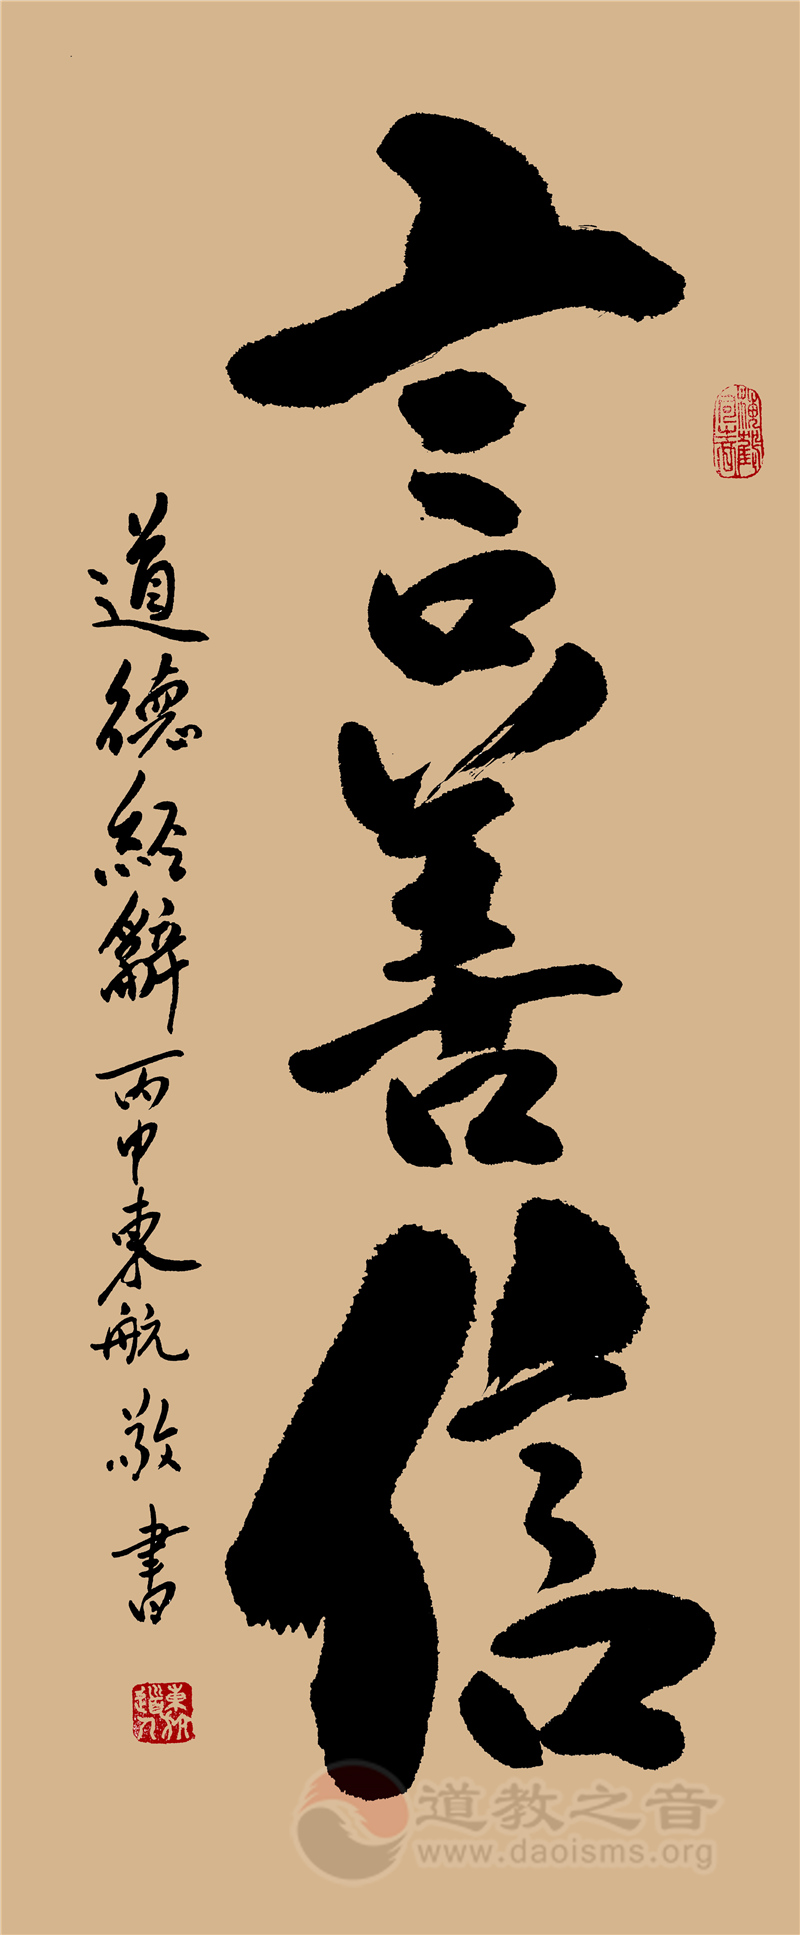 言善信
道德经辞丙申東航敬書
東航
道教之音
www.daoisms.org